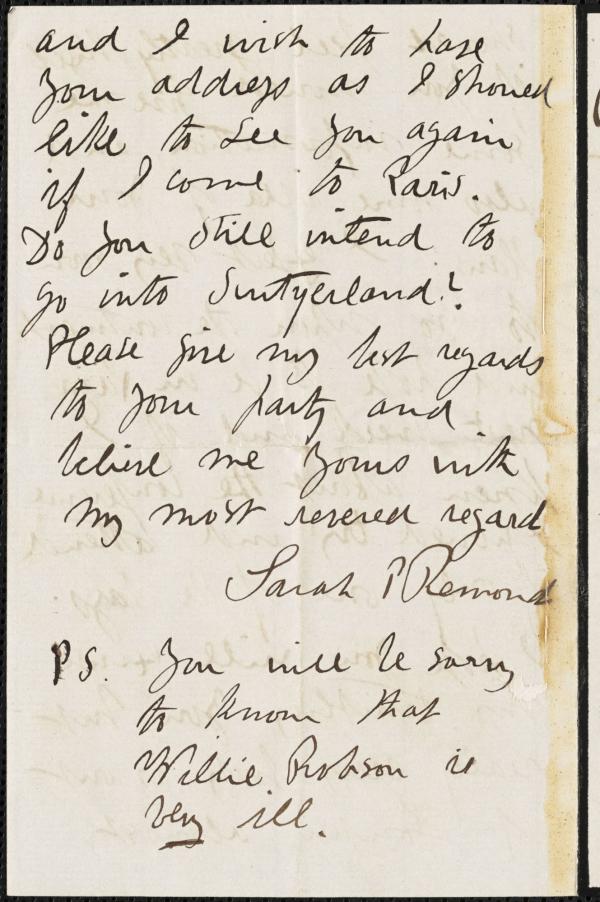 and I wish to have
your address as I should
like to see you again
if I come to Paris.
Do you still intend to
go into Switzerland?
Please give my best regards
to your party and
believe me yours with
my most revered regard
Sarah P Remond
PS. You will be sorry
to know that
Willie Robson is
very ill.